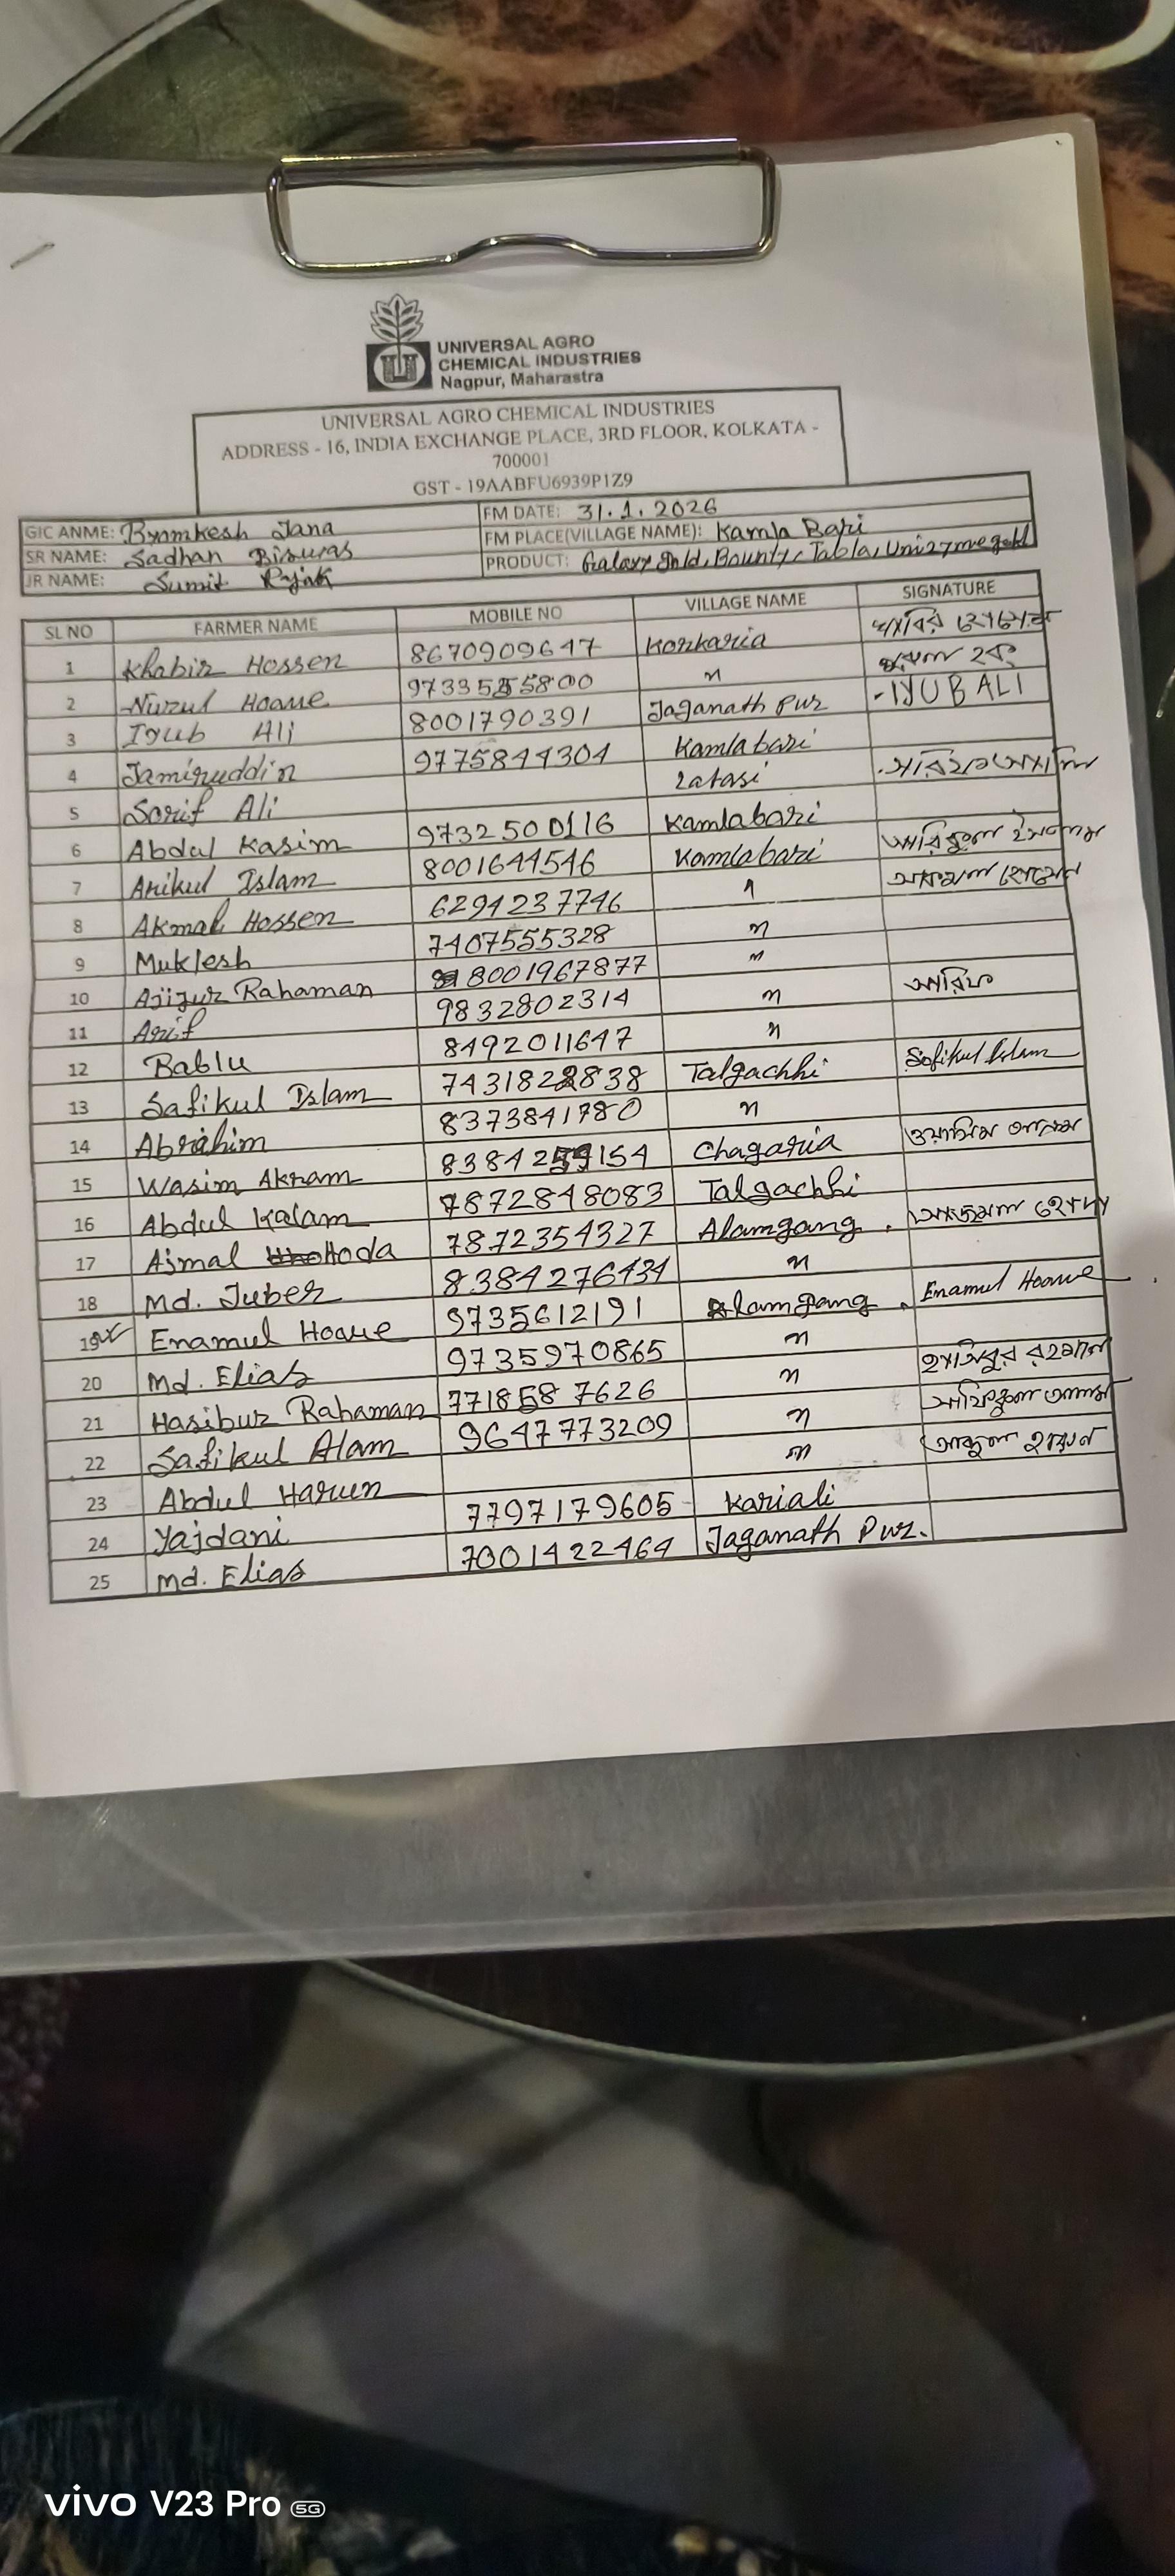 UNIVERSAL AGRO
CHEMICAL INDUSTRIES
Nagpur, Maharastra
UNIVERSAL AGRO CHEMICAL INDUSTRIES
ADDRESS - 16, INDIA EXCHANGE PLACE, 3RD FLOOR, KOLKATA -
700001
GST - 19AABFU6939P1Z9
GIC ANME: Byomkesh Jana FM DATE: 31.1.2026
SR NAME: Sadhan Biswas FM PLACE(VILLAGE NAME): Kamla Bari
JR NAME: Sumit Rajak PRODUCT: Galaxy Gold, Bounty, Tabla,
SL NO FARMER NAME MOBILE NO VILLAGE NAME SIGNATURE
1 Khabir Hossen 8670909647 Korkaria খাবির হোসেন
2 Nurul Hoque 9733525800 " হক
3 Iyub Ali 8001790391 Jaganath Pur IYUB ALI
4 Jamiruddin 9775844304 Kamlabari
5 Sorif Ali Latasi
6 Abdul Kasim 9732500116 Kamlabari
7 Arikul Islam 8001644546 Kamlabari আরিকুল ইসলাম
8 Akmal Hossen 6294237746 " আকমাল হোসেন
9 Muklesh 7407555328 "
10 Ajijur Rahaman 8001967877 "
11 Arif 9832802314 " আরিফ
12 Bablu 8492011647 "
13 Safikul Islam 7431828838 Talgachhi Sofikul Islam
14 Abrahim 8373841780 "
15 Wasim Akram 8384259154 Chagaria ওয়াসিম আকরাম
16 Abdul Kalam 7872848083 Talgachhi
17 Ajmal Hoda 7872354327 Alamgang. আজমাল হোদা
18 Md. Juber 8384276434 "
19 Enamul Hoque 9735612191 Alamgang. Enamul Hoque
20 Md. Elias 9735970865 "
21 Hasibur Rahaman 7718587626 " হাসিবুর রহমান
22 Safikul Alam 9647773209 " সাফিকুল আলম
23 Abdul Harun " আব্দুল হারুন
24 Yajdani 7797179605 Kariali
25 Md. Elias 7001422464 Jaganath Pur.
vivo V23 Pro 5G